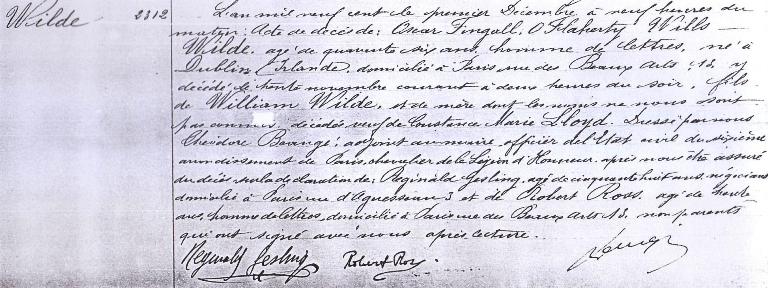 Wilde 2312
L'an mil neuf cent le premier Décembre à neuf heures du
matin: Acte de décès de: Oscar Fingall, O'Flaherty Wills
Wilde, agé de quarante six ans, homme de lettres, né à
Dublin (Irlande, domicilié à Paris rue des Beaux Arts 13, y
décédé le trente novembre courant à deux heures du soir, fils
de William Wilde, et de mère dont les noms ne nous sont
pas connus, décédés, veuf de Constance Marie Lloyd. Dressé par nous
adjoint au maire, officier de l'Etat civil du sixième
arrondissement de Paris, chevalier de la Légion d'Honneur. après nous être assuré
du décès sur la déclaration de: Reginald Gesling, agé de cinquante huit ans, négociant
domicilié à Paris rue d'Aguesseau 3 et de Robert Ross, agé de trente
ans, homme de lettres, domicilié à Paris rue des Beaux Arts 13, non parents
qui ont signé avec nous après lecture.
Reginald Gesling Robert Ross.